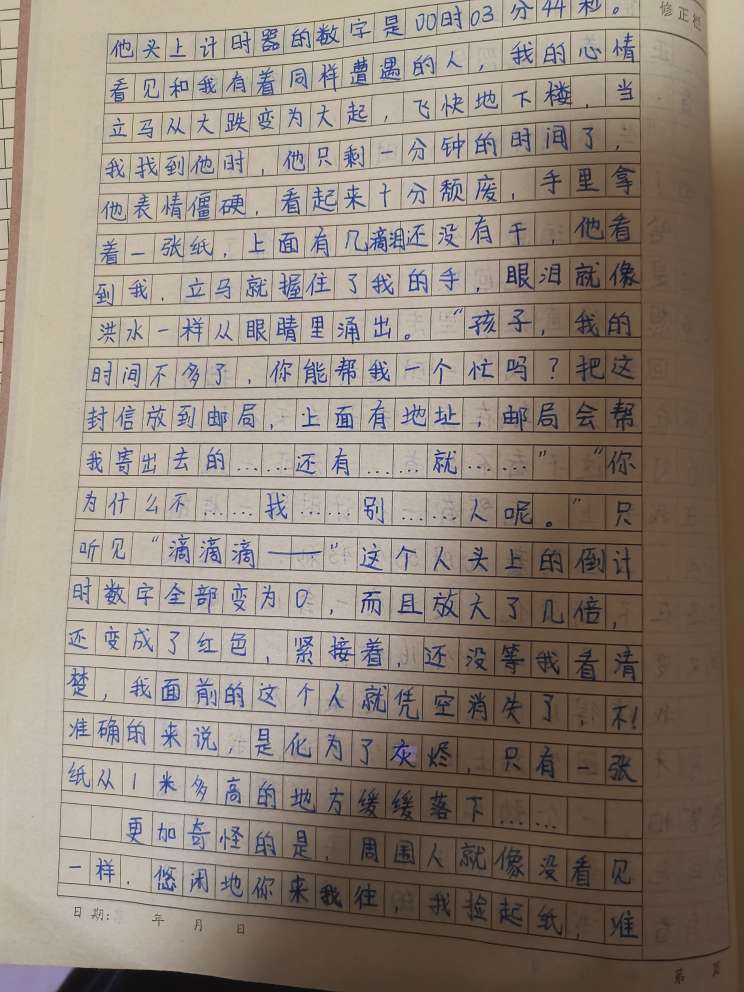 修正栏
他头上计时器的数字是00时03分44秒。
看见和我有着同样遭遇的人，我的心情
立马从大跌变为大起，飞快地下楼，当
我找到他时，他只剩一分钟的时间了，
他表情僵硬，看起来十分颓废，手里拿
着一张纸，上面有几滴泪还没有干，他看
到我，立马就握住了我的手，眼泪就像
洪水一样从眼睛里涌出。“孩子，我的
时间不多了，你能帮我一个忙吗？把这
封信放到邮局，上面有地址，邮局会帮
我寄出去的……还有……就……”“你
为什么不……找……别……人呢。”只
听见“滴滴滴——”这个人头上的倒计
时数字全部变为0，而且放大了几倍，
还变成了红色，紧接着，还没等我看清
楚，我面前的这个人就凭空消失了，不！
准确的来说，是化为了灰烬，只有一张
纸从1米多高的地方缓缓落下……
更加奇怪的是，周围人就像没看见
一样，悠闲地你来我往，我捡起纸，难
日期： 年 月 日
第 页